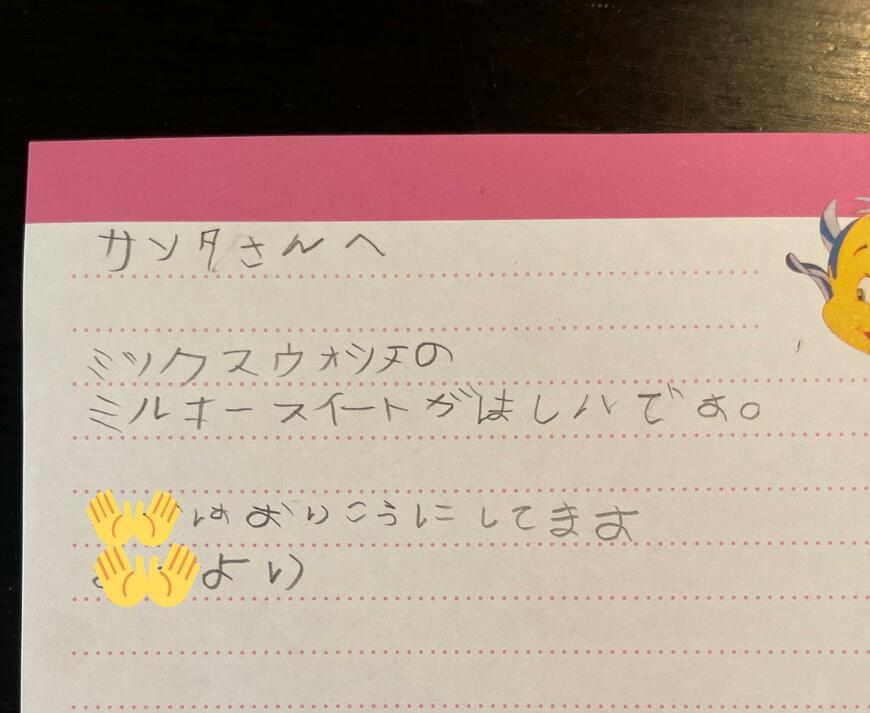 サンタさんへ
ミックスウォッチの
ミルキースイートがほしいです。
はおりこうにしてます
より